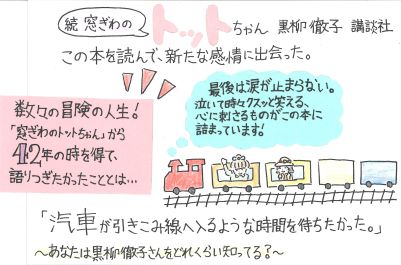 続 窓ぎわの トットちゃん 黒柳 徹子 講談社
この本を読んで、新たな感情に出会った。
数々の冒険の人生！
「窓ぎわのトットちゃん」から
42年の時を得て、
語りつぎたかったこととは…
最後は涙が止まらない。
泣いて時々クスッと笑える、
心に刺さるものがこの本に
詰まっています！
「汽車が引きこみ線へ入るような時間を待ちたかった。」
～あなたは黒柳徹子さんをどれくらい知ってる？～